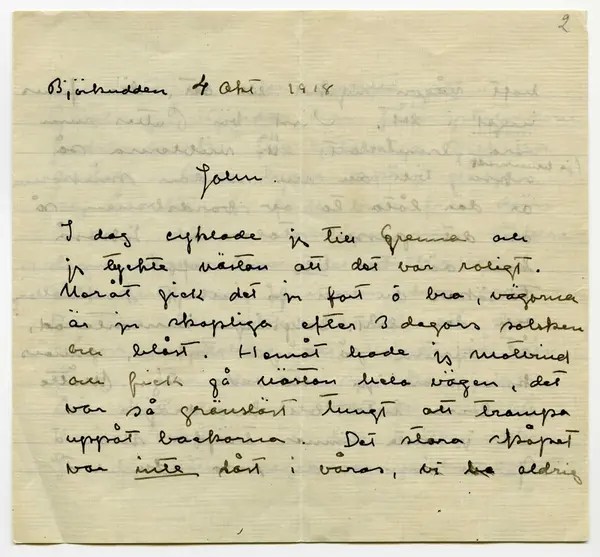 2
Björkudden 4 Okt 1918
John.
I dag cyklade jg till Grenna och
jg tyckte nästan att det var roligt.
Noråt gick det ju fort o bra, vägorna
är ju skapliga efter 3 dagars solsken
och blåst. Hemåt hade jg motvind
och fick gå nästan hela vägen, det
var så gränslöst tungt att trampa
uppåt backorna. Det stora skåpet
var inte låst i våras, vi aldrig